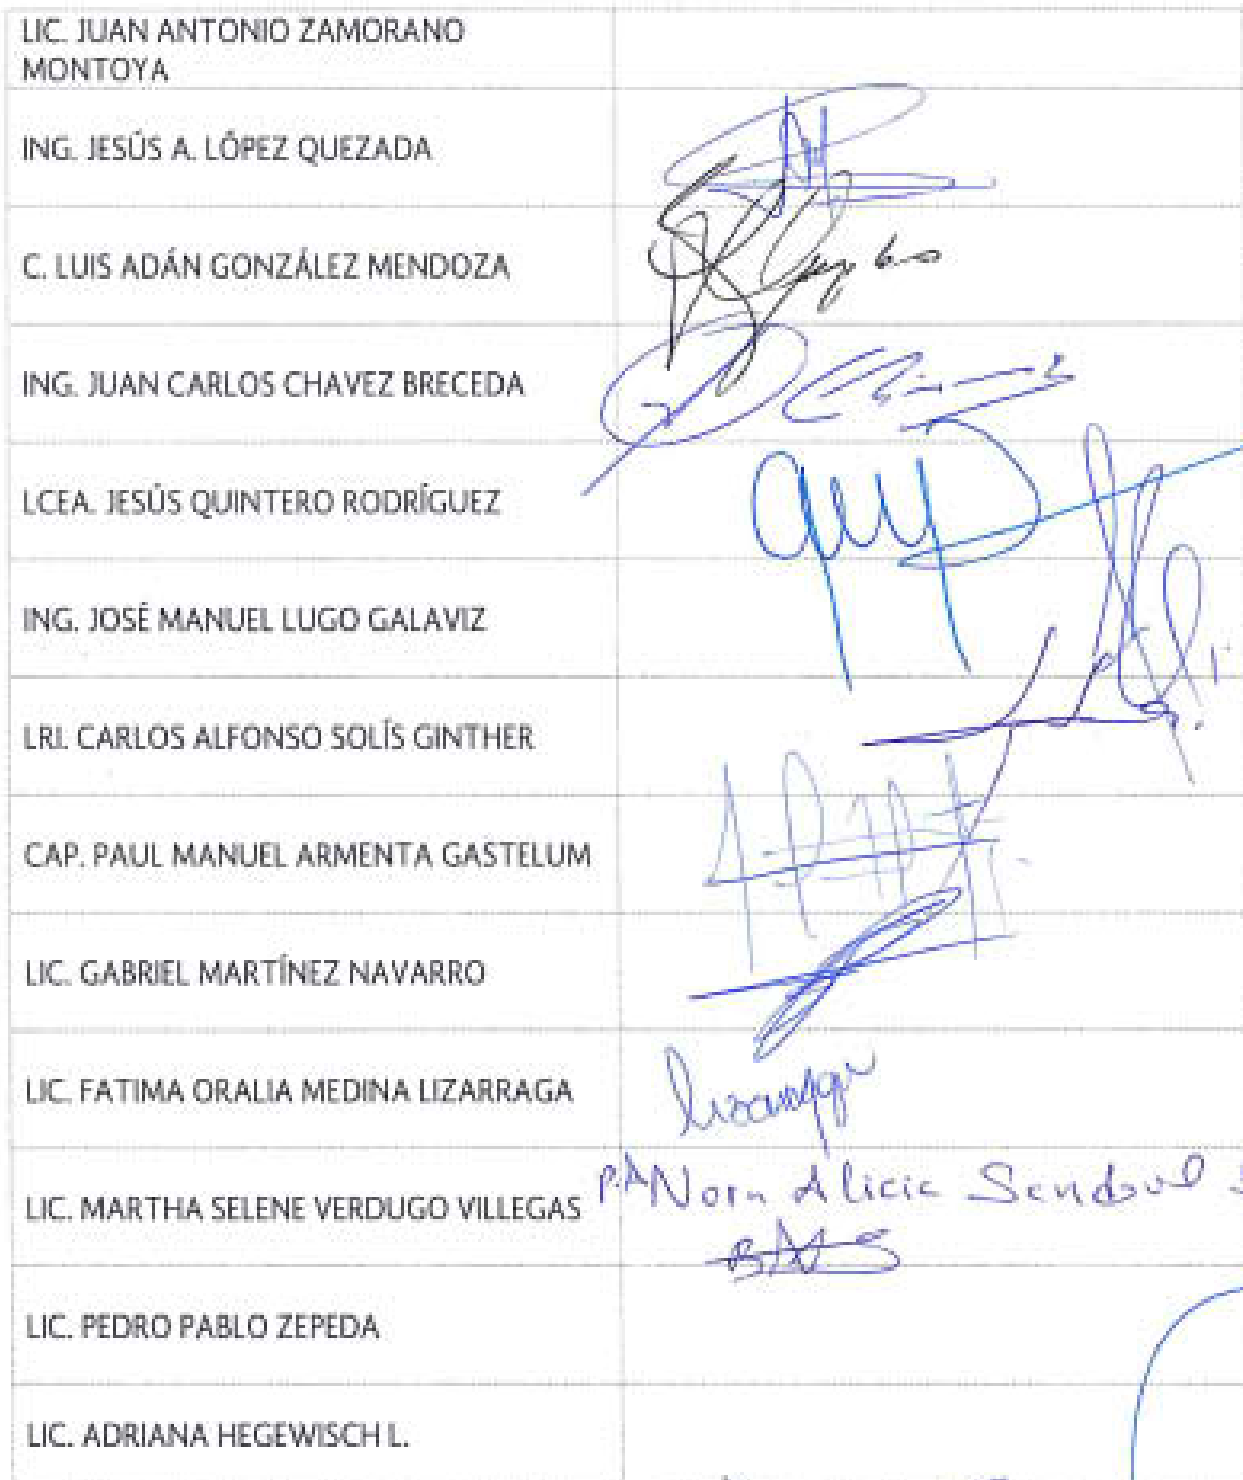 LIC. JUAN ANTONIO ZAMORANO
MONTOYA
ING. JESÚS A. LÓPEZ QUEZADA
C. LUIS ADÁN GONZÁLEZ MENDOZA
ING. JUAN CARLOS CHAVEZ BRECEDA
LCEA. JESÚS QUINTERO RODRÍGUEZ
ING. JOSÉ MANUEL LUGO GALAVIZ
LRI. CARLOS ALFONSO SOLÍS GINTHER
CAP. PAUL MANUEL ARMENTA GASTELUM
LIC. GABRIEL MARTÍNEZ NAVARRO
LIC. FATIMA ORALIA MEDINA LIZARRAGA
LIC. MARTHA SELENE VERDUGO VILLEGAS P.A Norn Alicia Sandoval
LIC. PEDRO PABLO ZEPEDA
LIC. ADRIANA HEGEWISCH L.